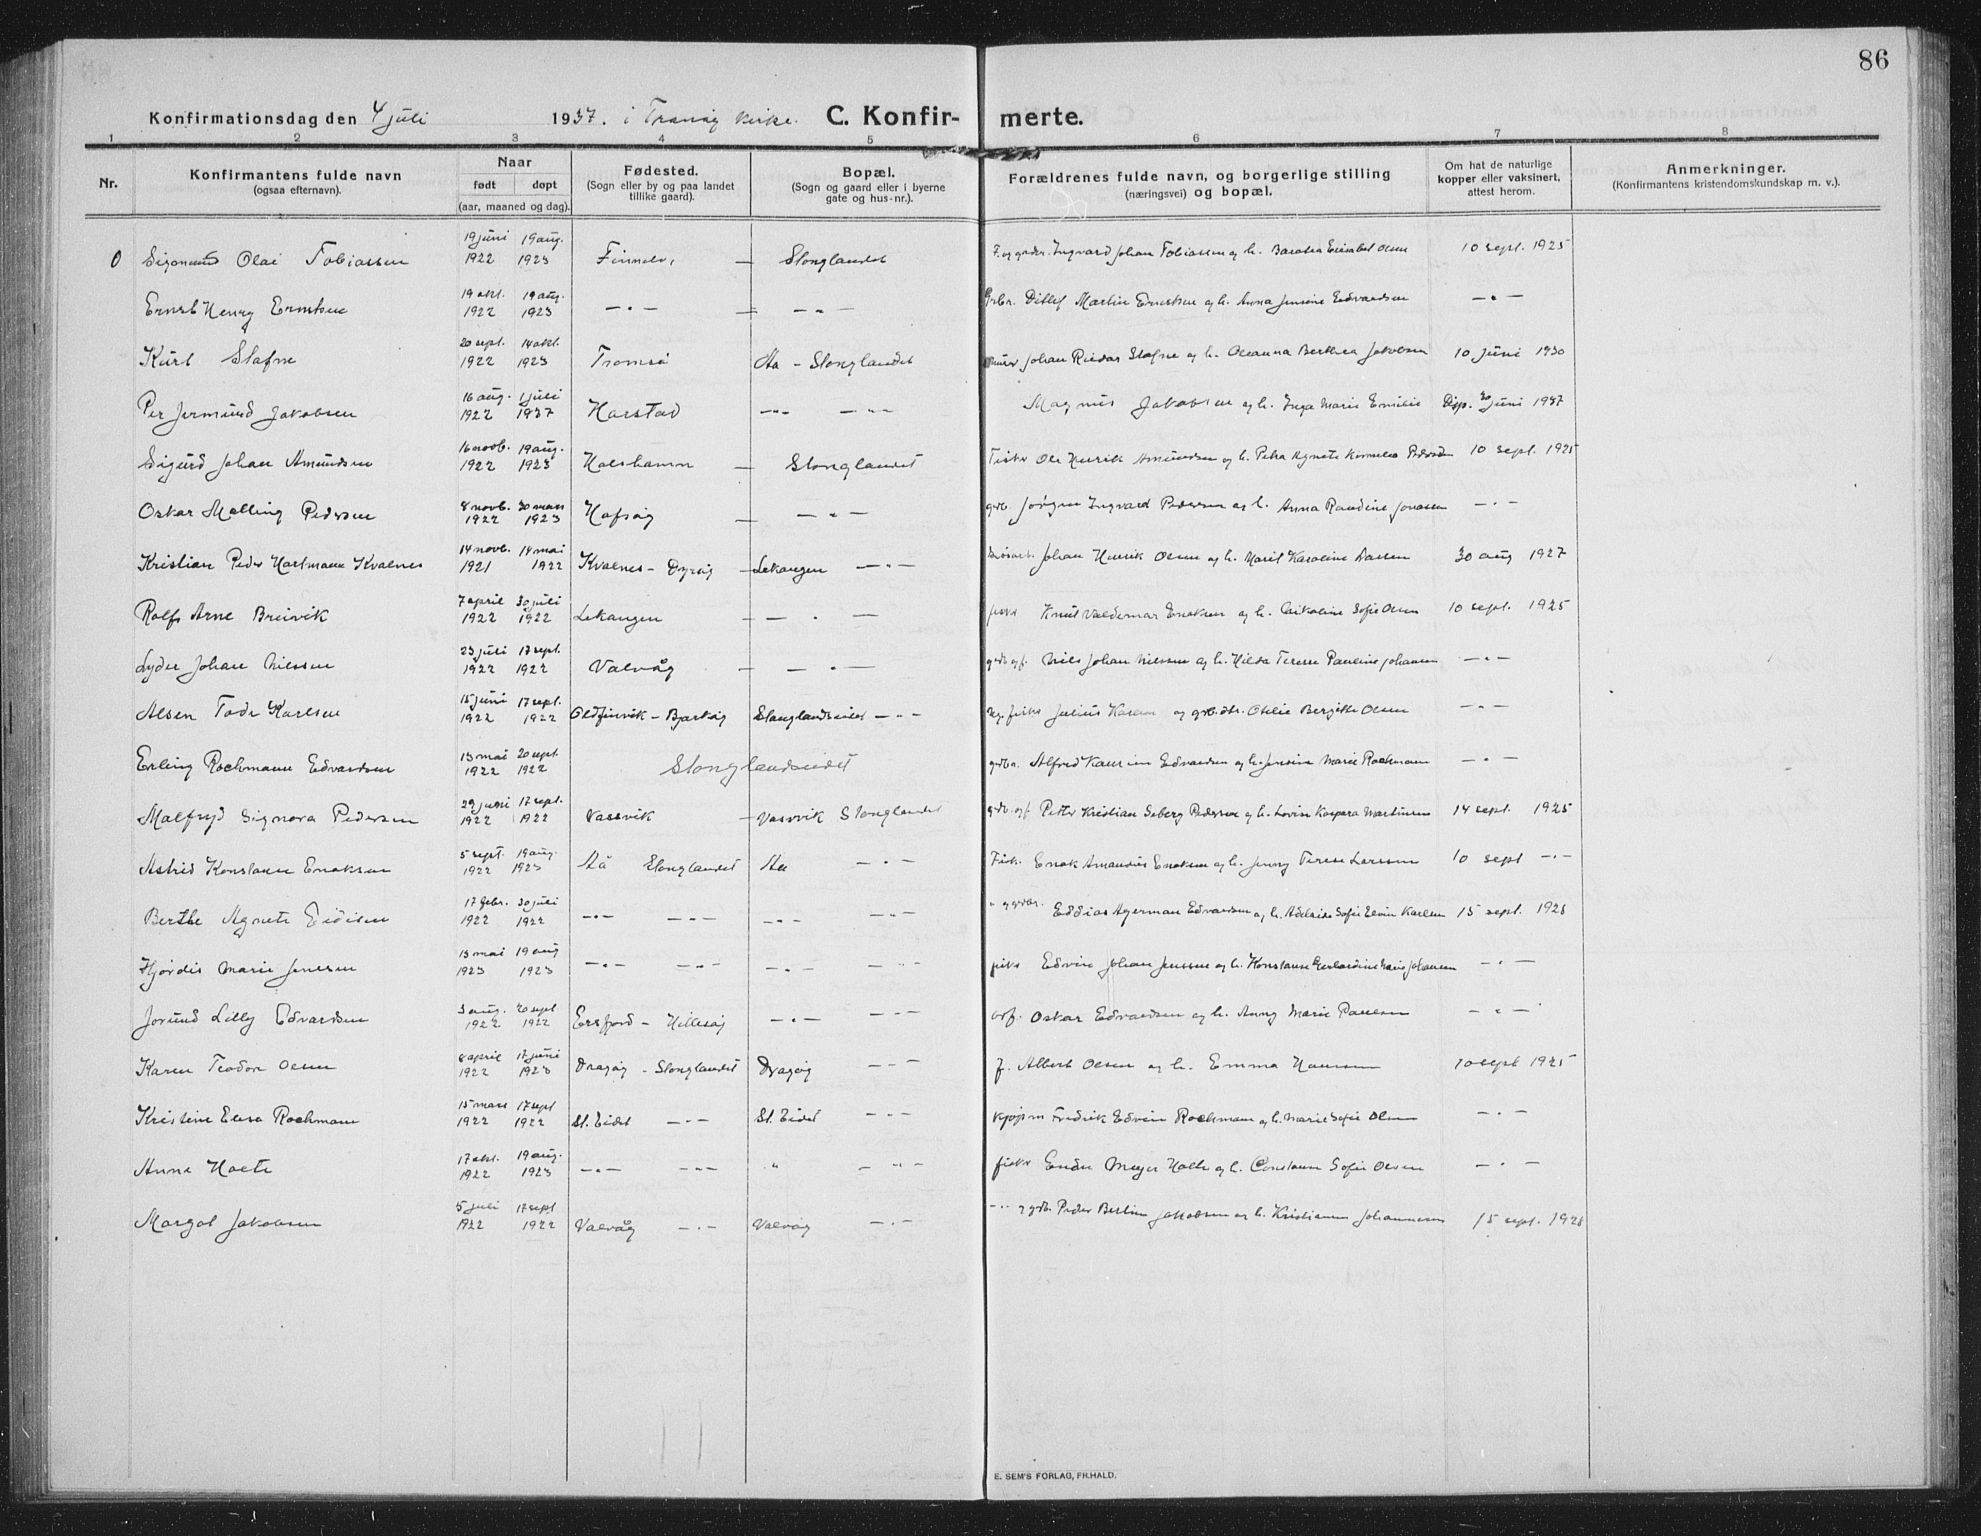 86
Konfirmationsdag den 4 juli 1937. i Tranøy Kirke. C. Konfir- merte.
1 2 3 4 5 6 7 8
Nr.
Konfirmantens fulde navn
(ogsaa efternavn).
Naar
født døpt
(aar, maaned og dag).
Fødested.
(Sogn eller by og paa landet
tillike gaard).
Bopæl.
(Sogn og gaard eller i byerne
gate og hus-nr.).
Forældrenes fulde navn, og borgerlige stilling
(næringsvei) og bopæl.
Om hat de naturlige
kopper eller vaksinert,
attest herom.
Anmerkninger.
(Konfirmantens kristendomskundskap m. v.).
19 juni 19 aug.
0 Sigmund Olai Tobiassen 1922 1923 — Stonglandet Ingvard Johan Tobiassen og h. Olsen 10 sept. 1925
19 okt. 19 aug.
Ernst Henry 1922 1923 —〃— — —〃— Ditlef Martin og h. Anna Jensine Edvardsen —〃—
20 sept. 14 okt.
Kurt Stafne 1922 1923 Tromsø Aa - Stonglandet Johan Reidar Stafne og h. Oleanna Berthea Jakobsen 10 juni 1930
16 aug. 1 juli
Per Jermund Jakobsen 1922 1937 Harstad —〃— —〃— Magnus Jakobsen og h. Inga Marie Emilie Disp. 30 juni 1937
16 novb. 19 aug.
Sigurd Johan Amundsen 1922 1923 — Stonglandet Fisker Ole Henrik Amundsen og h. Petra Agnete 10 sept. 1925
8 novb. 30 mars
Oskar Malling Pedersen 1922 1923 Hofsøy — —〃— grb. Jørgen Ingvard Pedersen og h. Anna Raudine Jonassen —〃—
14 novb. 14 mai
Kristian Peder Hartmann Kvalnes 1921 1922 Kvalnes - Dyrøy — Lekangen —〃— Johan Henrik Olsen og h. Marit Karoline 30 aug 1927
7 april 30 juli
Rolf Arne Breivik 1922 1922 Lekangen — —〃— fisker Knut Valdemar Enoksen og h. Nikoline Sofie Olsen 10 sept. 1925
23 juli 17 sept.
Lyder Johan Nilssen 1922 1922 Valvåg — —〃— Nils Johan Nilssen og h. Hilda Terese Pauline Johansen —〃—
15 juni 17 sept.
Karlsen 1922 1922 - Bjarkøy Stonglandseidet —〃— Julius Karlsen og Otelie Bergitte Olsen —〃—
13 mai 20 sept.
Erling Rochmann Edvardsen 1922 1922 Stonglandseidet Alfred Edvardsen og h. Jensine Marie Rochmann —〃—
29 juni 17 sept.
Malfryd Signora Pedersen 1922 1922 Vassvik — Vassvik Stonglandet Peter Kristian Seberg Pedersen og h. Lovise Kaspara Martinsen 14 sept. 1925
5 sept. 19 aug.
Astrid Konstanse Enoksen 1922 1923 Aå Stonglandet Aa —〃— Fisk. Enok Amandus Enoksen og h. Jenny Terese Larssen 10 sept —〃—
17 febr. 30 juli
Berthe Agnete 1922 1922 —〃— —〃— —〃— —〃— Eddias Agerman Edvardsen og h. Adelaide Sofie Karlsen 15 sept. 1928
13 mai 19 aug
Hjørdis Marie Jenssen 1923 1923 —〃— —〃— —〃— —〃— fisker Edvin Johan Jenssen og h. Konstanse Johansen —〃—
3 aug. 20 sept
Jorund Lilly Edvardsen 1922 1922 Ersfjord - Hillesøy —〃— —〃— Oskar Edvardsen og h. Anny Marie Paulsen —〃—
8 april 17 juni
Karen Teodora Olsen 1922 1923 Dragøy - Stonglandet Dragøy —〃— f. Albert Olsen og h. Emma Hansen 10 sept 1925
15 mars 17 sept
Kristine Elisa Rochmann 1922 1922 St. Eidet —〃— St. Eidet —〃— Fredrik Edvin Rochmann og h. Marie Sofie Olsen —〃—
17 okt. 19 aug.
Anna Holte 1922 1923 —〃— —〃— 〃 —〃— fisker Endre Meyer Holte og h. Constanse Sofie Olsen —〃—
5 juli 17 sept
Margot Jakobsen 1922 1922 Valvåg —〃— Valvåg —〃— —〃— Peder Jakobsen og h. 15 sept. 1928
E. SEM'S FORLAG, FR.HALD.